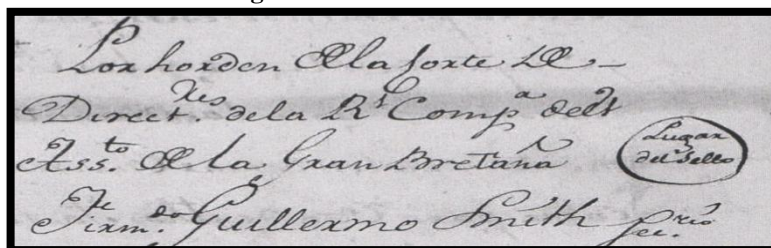 Por horden de la Corte de
Direct.res de la Rl Compa del
Assto de la Gran Bretaña
Lugar
del Sello
Firmdo Guillermo Smith Secrio